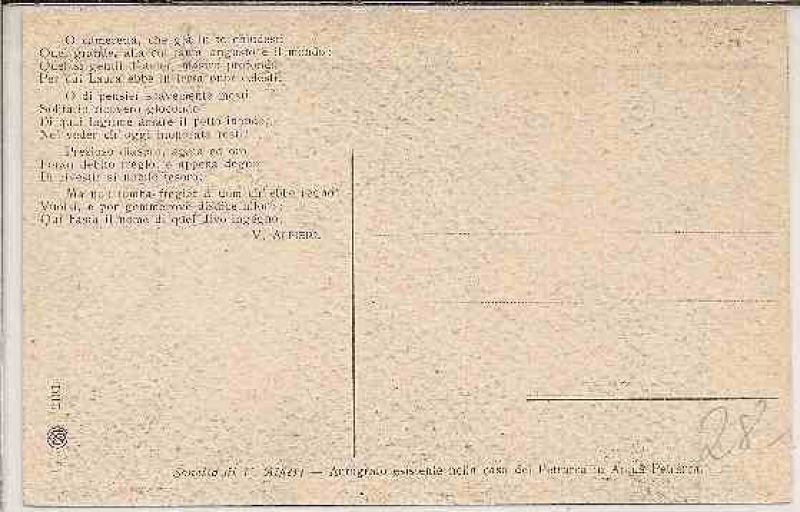 O cameretta, che già in te chiudesti
Quel grande, alla cui fama angusto è il mondo;
Quel sì gentil d'amor mastro profondo
Per cui Laura ebbe in terra onor celesti;
O di pensier soavemente mesti
Solitario ricovero giocondo
Di quai lagrime amare il petto inondo,
Nel veder ch'oggi inonorato resti!
Prezioso diaspro, agata ed oro
Foran debito fregio, e appena degno
Di rivestir sì nobile tesoro.
Ma no: tomba fregiar d'uom ch'ebbe regno
Vuolsi, e por gemme ove disdice alloro:
Qui basta il nome di quel divo ingegno.
V. ALFIERI.
Sonetto di V. Alfieri — Autografo esistente nella casa del Petrarca in Arquà Petrarca.
28